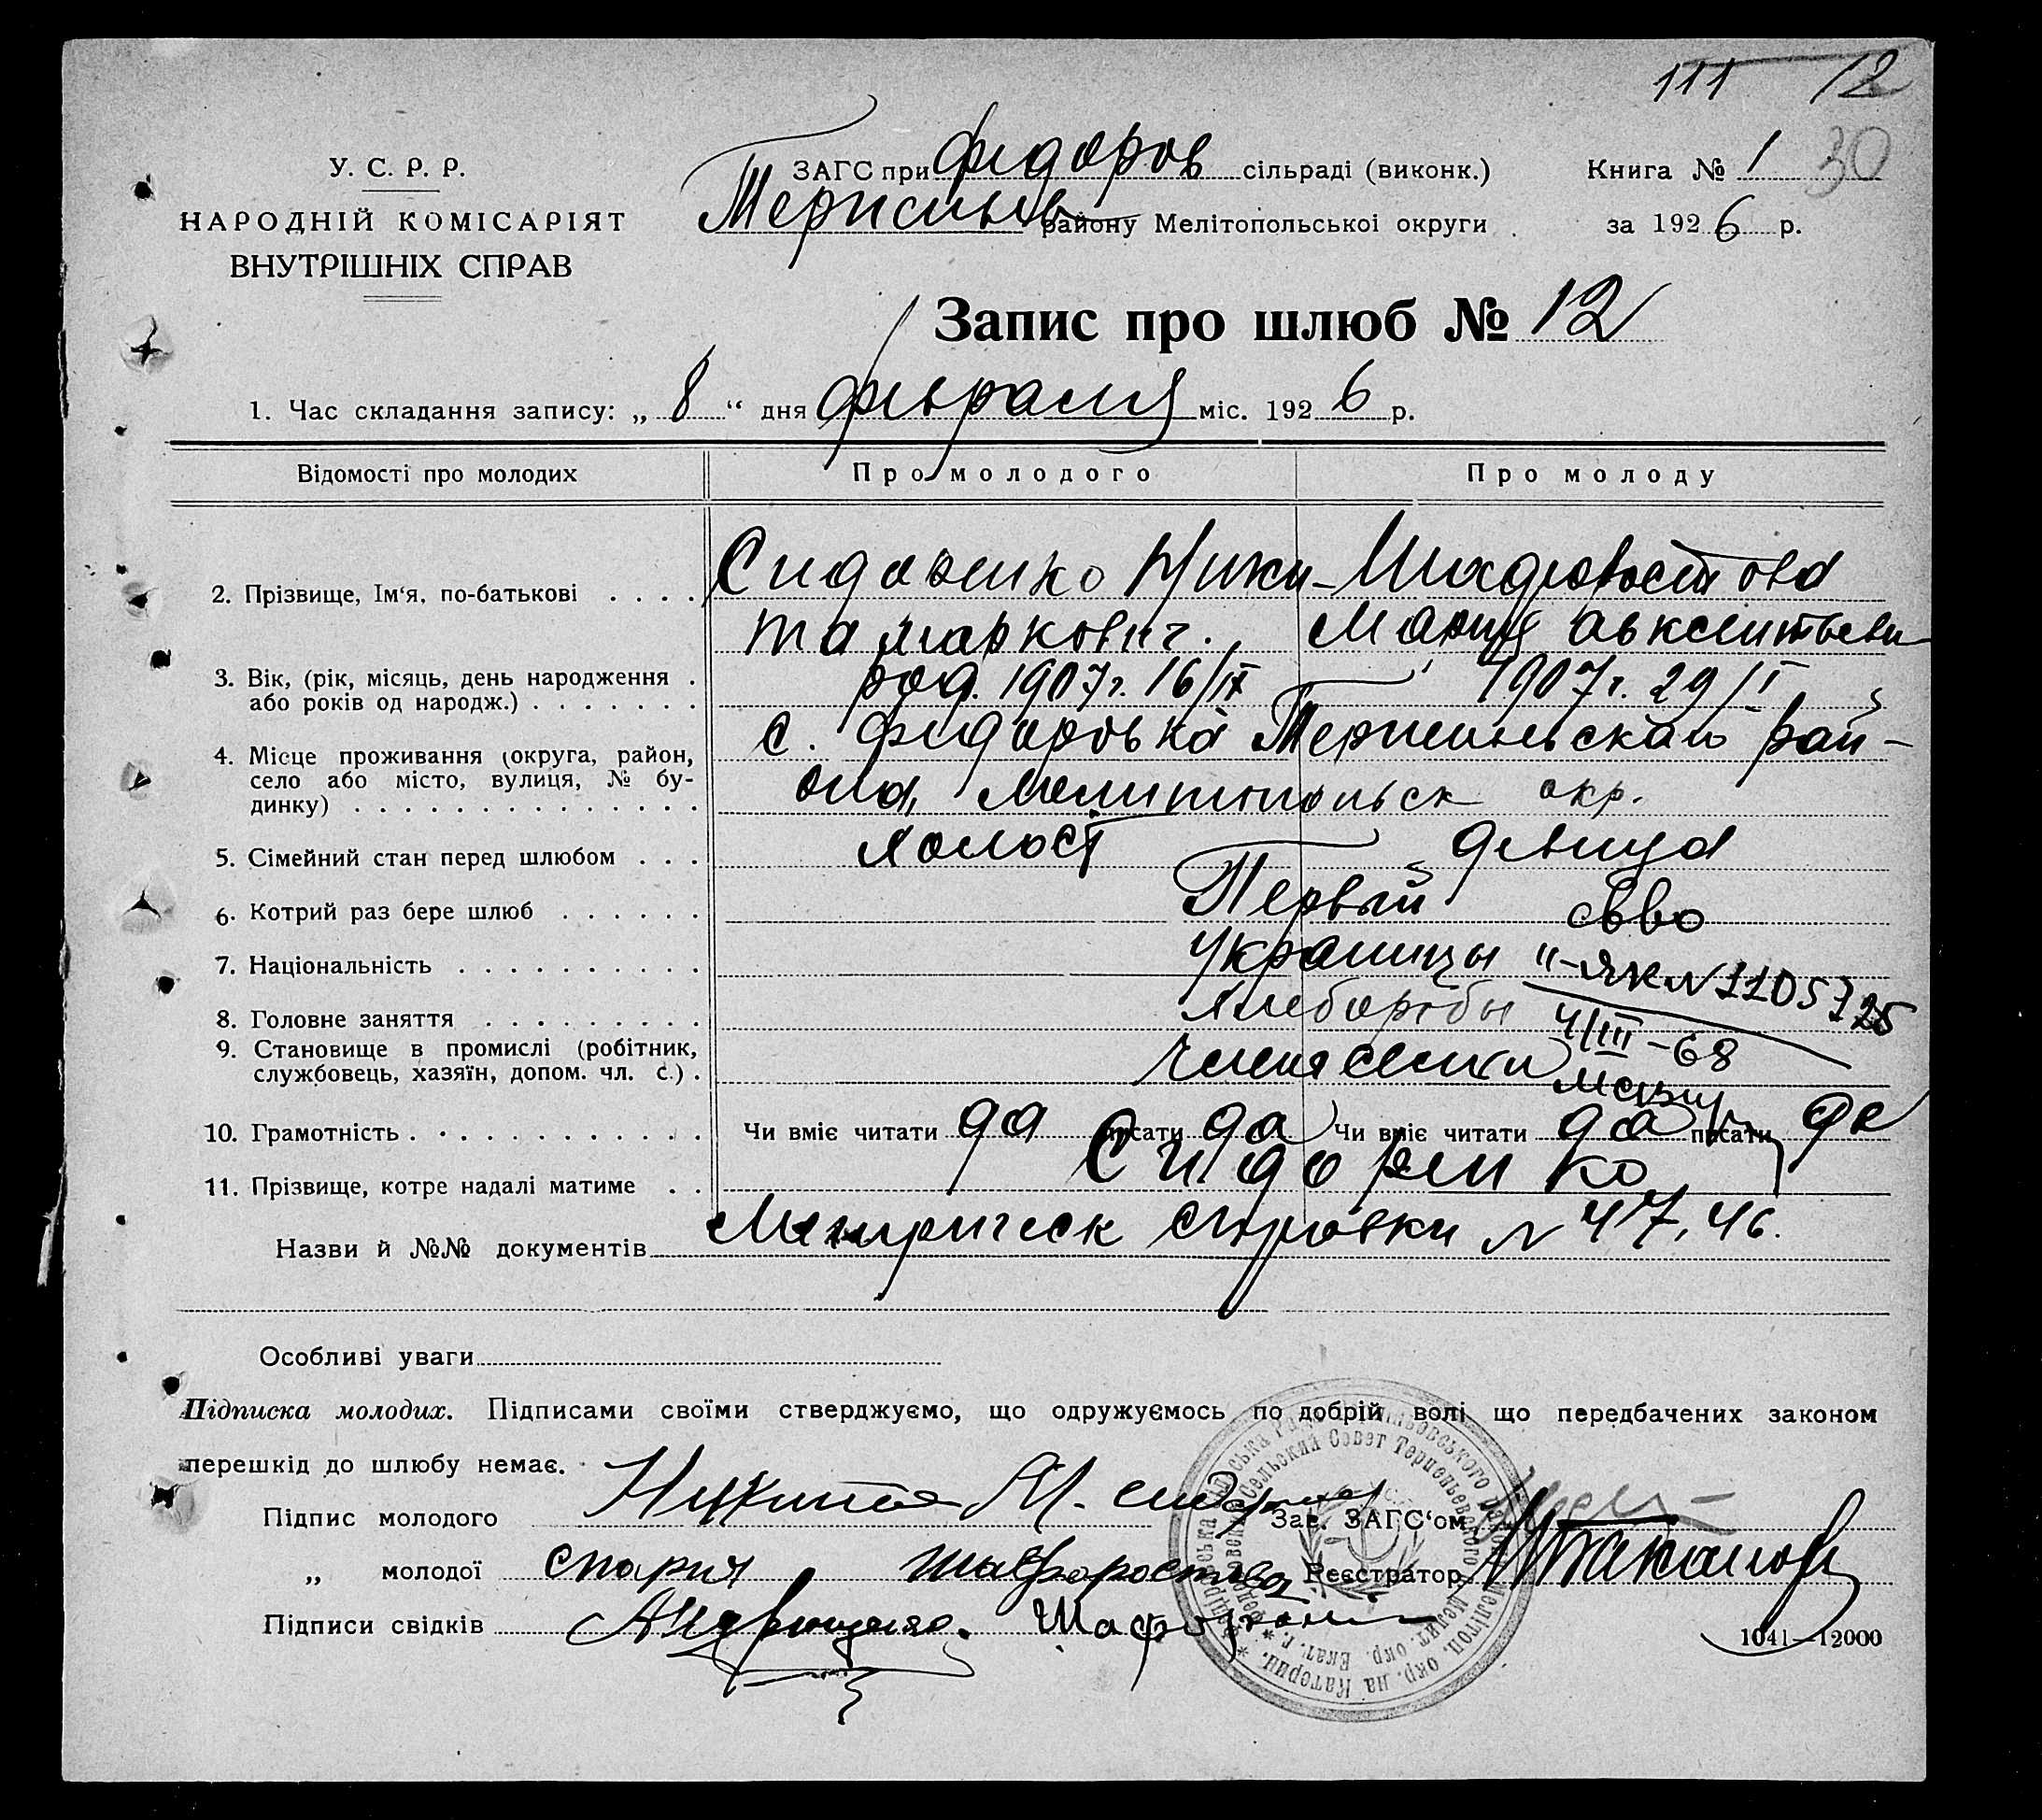 111 12
У. С. Р. Р.
ЗАГС при Федоров сільраді (виконк.)
Книга № 1 30
НАРОДНІЙ КОМІСАРІЯТ
району Мелітопольської округи
за 1926 р.
ВНУТРІШНІХ СПРАВ
Запис про шлюб № 12
1. Час складання запису: „ 8 “ дня февраля міс. 1926 р.
Відомості про молодих
Про молодого
Про молоду
2. Прізвище, Ім‘я, по-батькові . . . .
Сидоренко Ники-
та Маркович.
Мария Авксентьевн
3. Вік, (рік, місяць, день народження .
або років од народж.) . . . . . . .
род. 1907 г. 16/IX
1907 г. 29/I
4. Місце проживання (округа, район,
село або місто, вулиця, № бу-
динку) . . . . . . . . . . . . . .
с. Федоровка Терпеньевскаго рай-
она, Мелитопольск окр.
5. Сімейний стан перед шлюбом . . .
холост
девица
6. Котрий раз бере шлюб . . . . . .
Первый
св-во
7. Національність . . . . . . . . . .
Украинцы
II-ЯК N 1105725
8. Головне заняття . . . . . . . . .
Хлеборобы
4/III-68
9. Становище в промислі (робітник,
службовець, хазяїн, допом. чл. с.) .
Члены семьи
10. Грамотність . . . . . . . . . . . .
Чи вміє читати да писати да
Чи вміє читати да писати да
11. Прізвище, котре надалі матиме . .
Сидоренко
Назви й №№ документів
Метрическ справки N 47, 46.
Особливі уваги
Підписка молодих. Підписами своїми стверджуємо, що одружуємось по добрій волі що передбачених законом
перешкід до шлюбу немає.
Підпис молодого
Никита М.
Зав. ЗАГС‘ом
„ молодої
Реєстратор
Підписи свідків
1041—12000